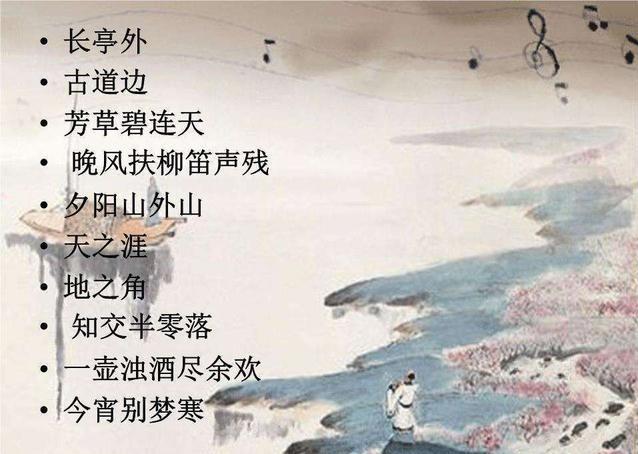 • 长亭外
• 古道边
• 芳草碧连天
• 晚风扶柳笛声残
• 夕阳山外山
• 天之涯
• 地之角
• 知交半零落
• 一壶浊酒尽余欢
• 今宵别梦寒